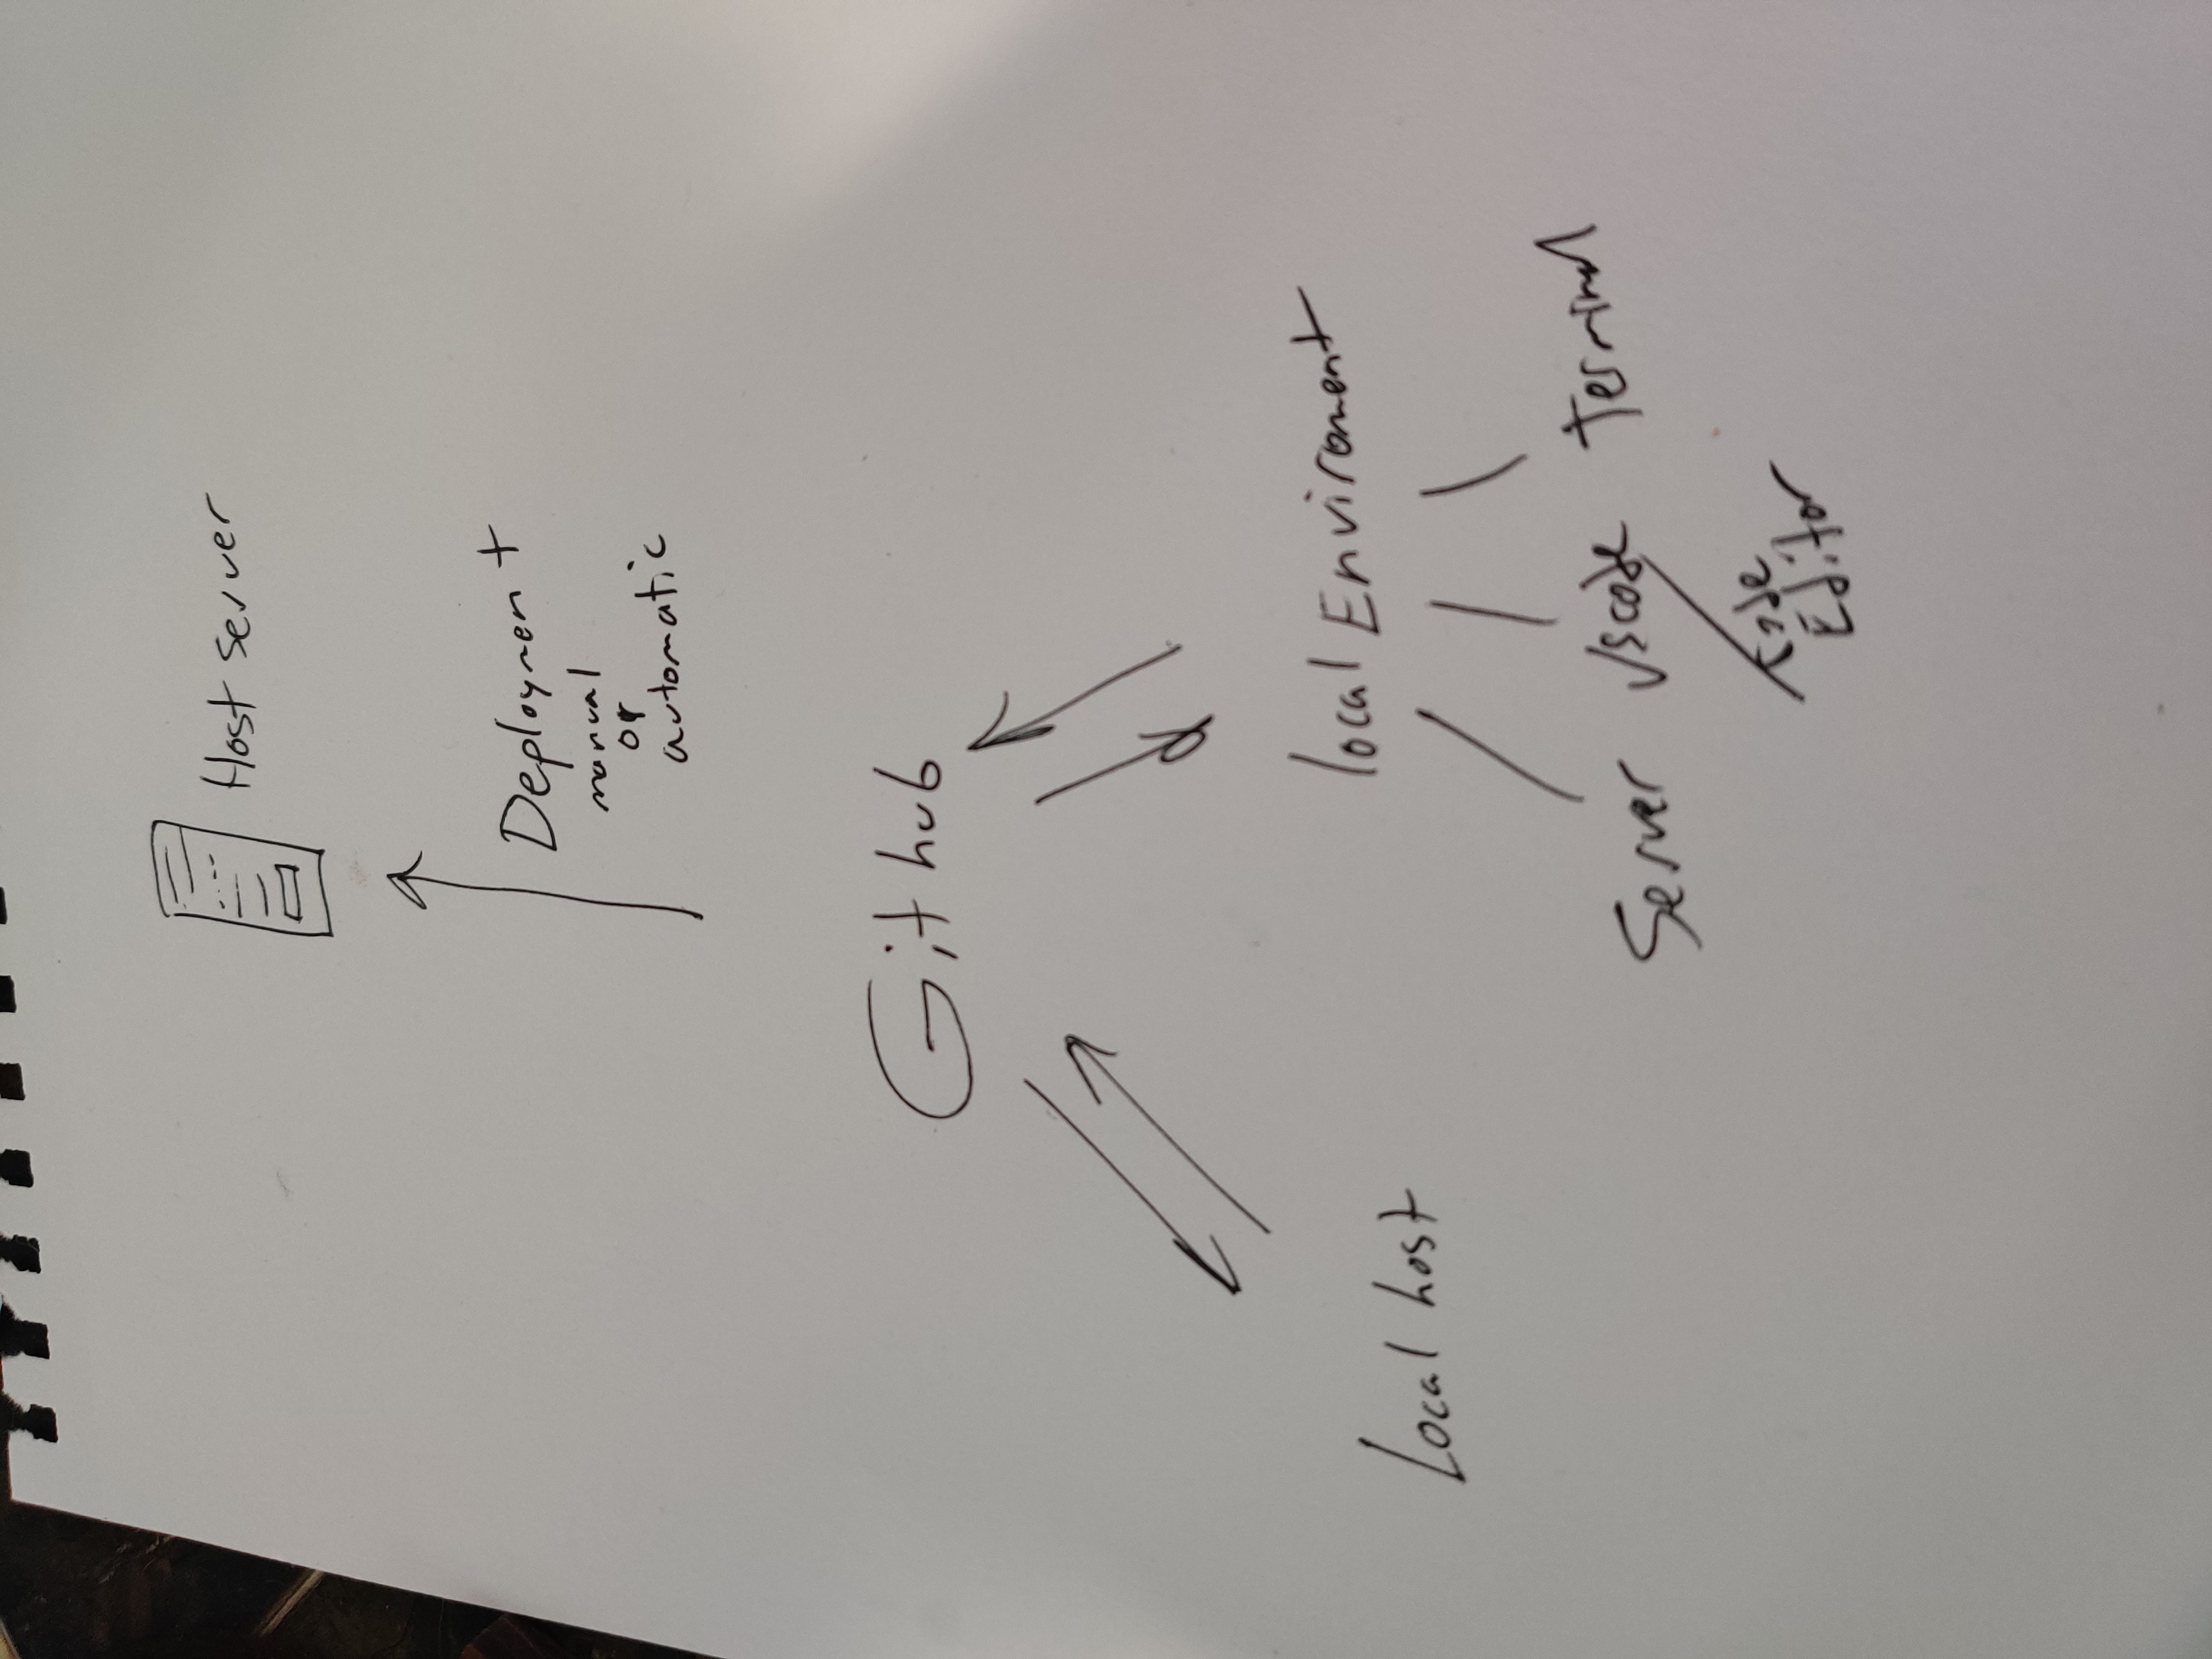 Host server
Deployment
manual
or
automatic
Github
local Enviroment
Local host
Server Vscode terminal
Code
Editor